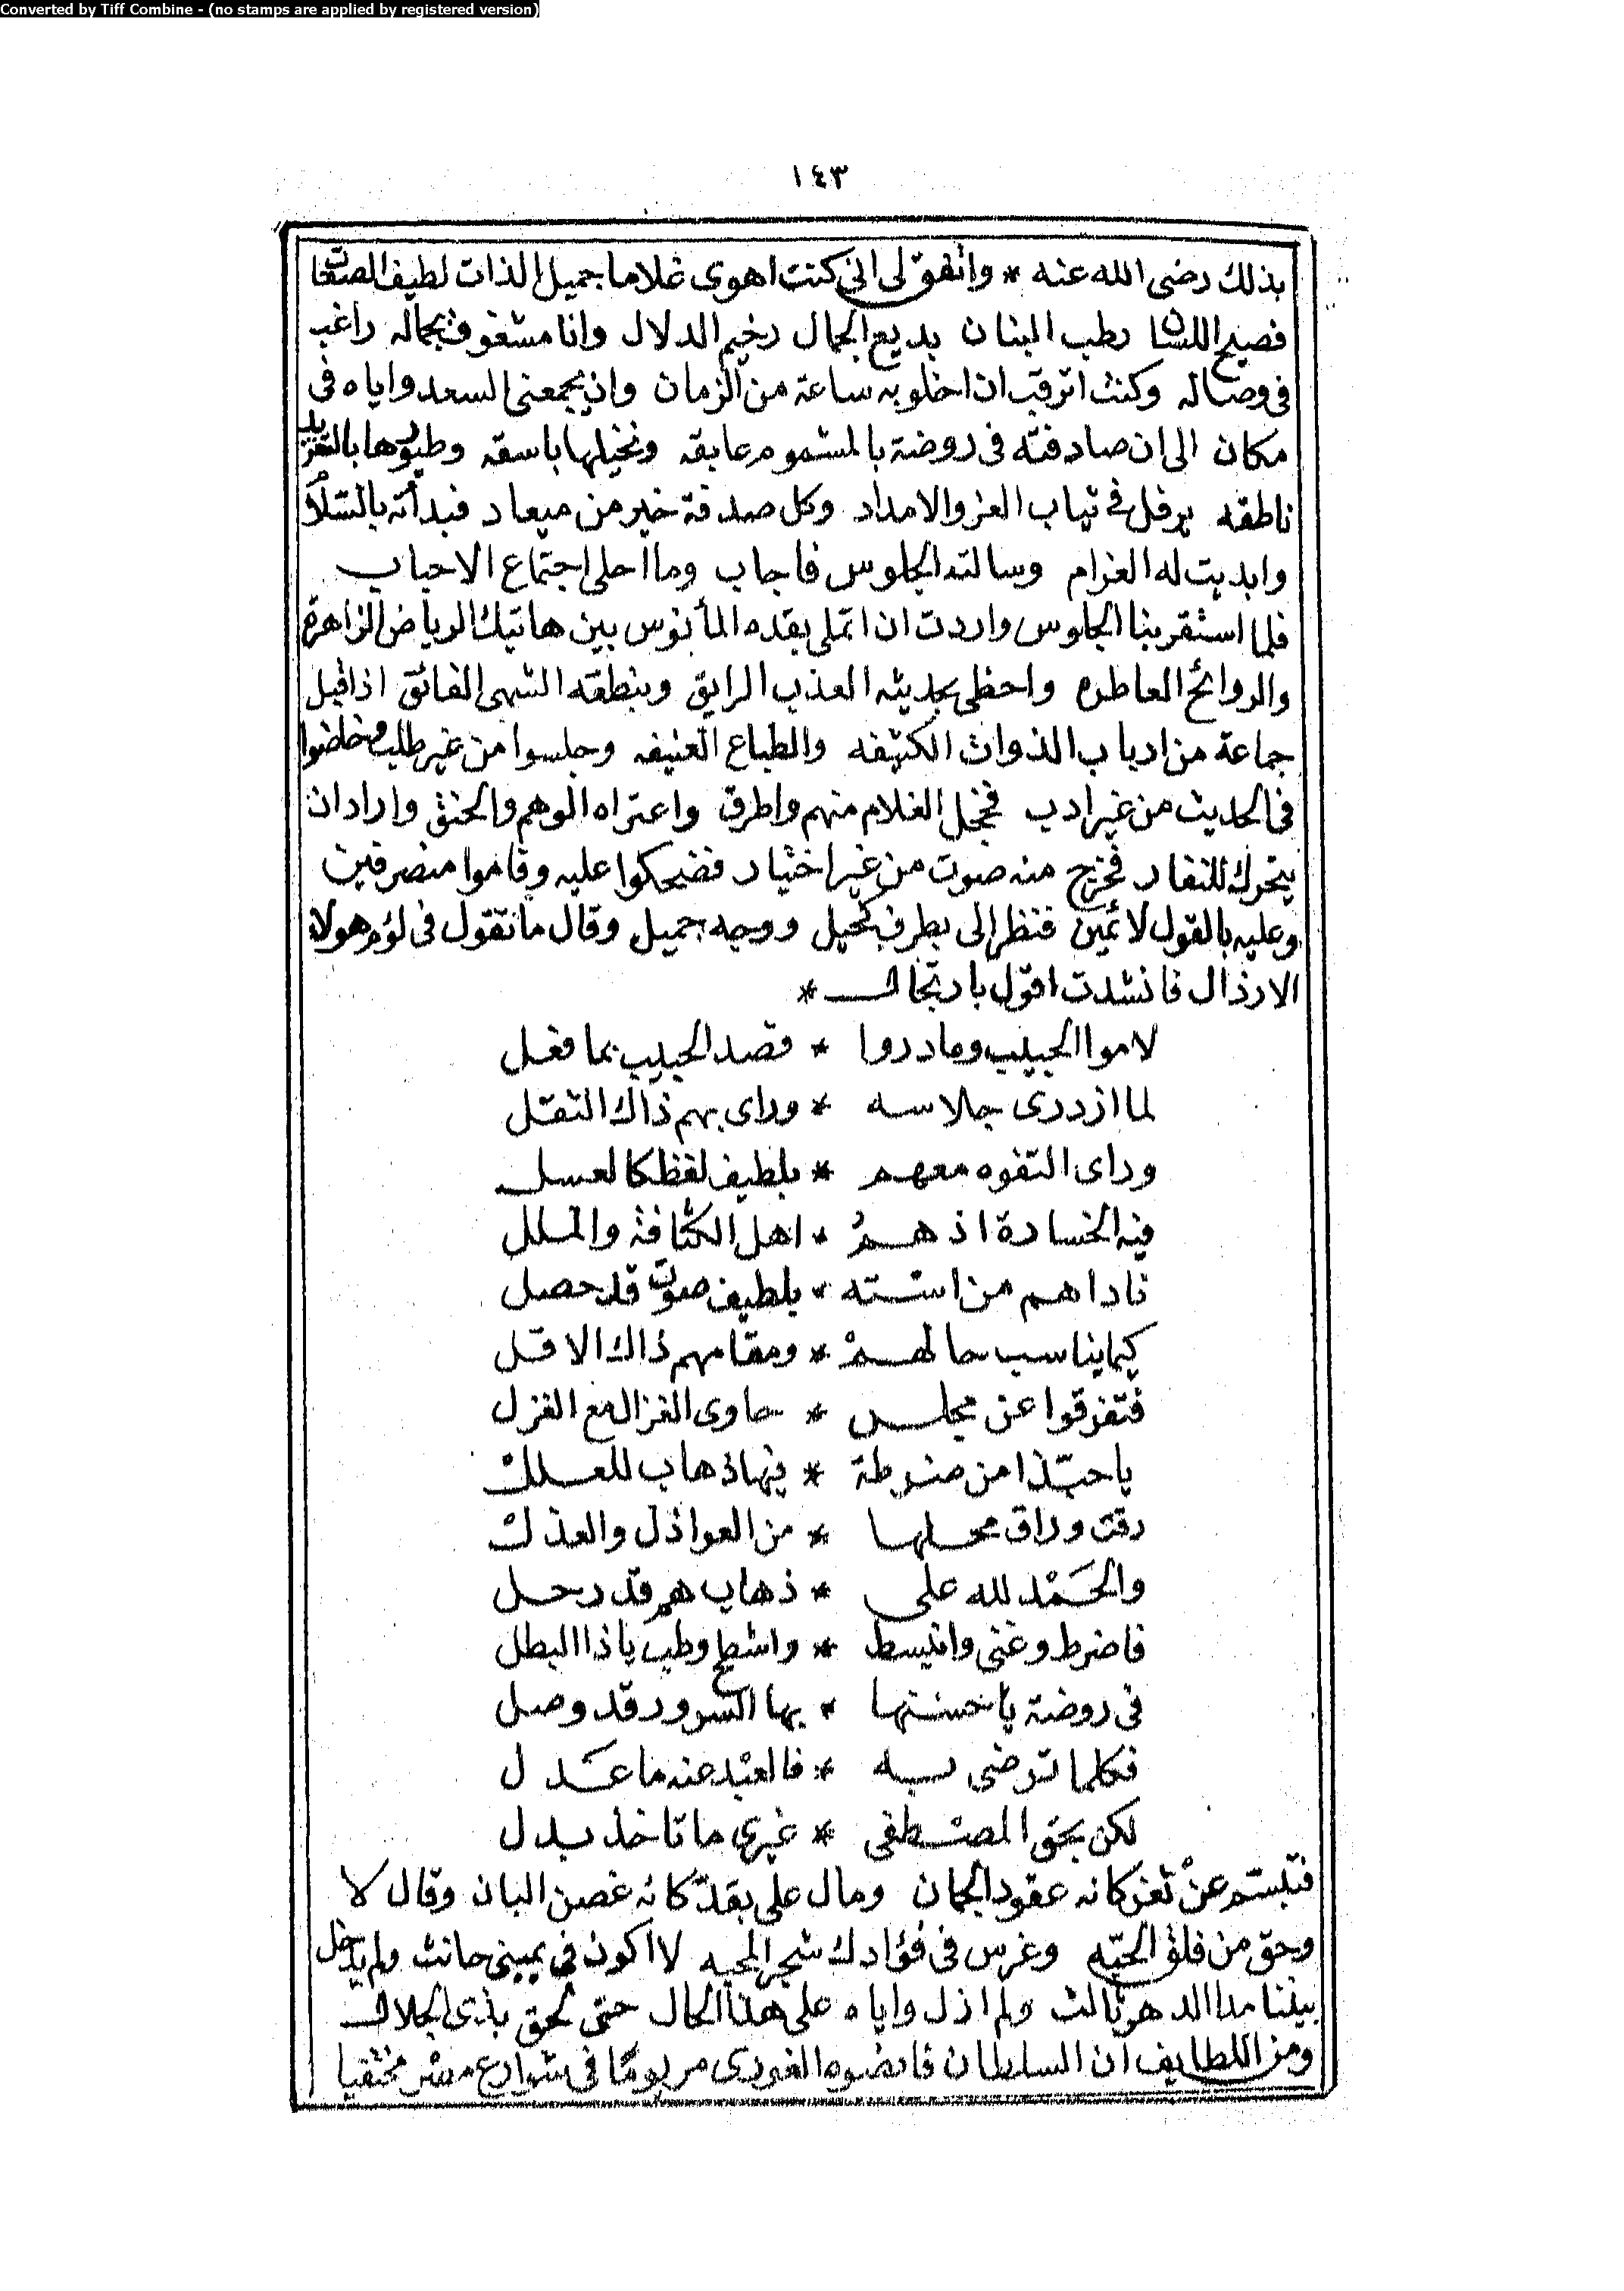 Converted by Tiff Combine - (no stamps are applied by registered version)
١٤٣
بذلك رضى الله عنه * واتفق لى انى كنت اهوى غلاما جميل الذات لطيف الصفات
فصيح اللسان رطب البنان بديع الجمال رخيم الدلال وانا مشغوف بجماله راغب
فى وصاله وكنت اترقب ان اخلو به ساعة من الزمان وان يجمعنى السعد واياه فى
مكان الى ان صادفته فى روضة بالمشموم عابقه ونخيلها باسقه وطيورها بالتغريد
ناطقه يرفل فى ثياب العز والامداد وكل صدفة خير من ميعاد فبدأته بالسّلام
وابديت له الغرام وسالته الجلوس فاجاب وما احلى اجتماع الاحباب
فلما استقر بنا الجلوس واردت ان اتملى بقده المأنوس بين هاتيك الرياض الزاهرة
والروائح العاطره واحظى بحديثه العذب الرايق وبنطقه الشهى الفائق اذ اقبل
جماعة من ارباب الذوات الكثيفه والطباع العنيفه وجلسوا من غير طلب وخاضوا
فى الحديث من غير ادب فخجل الغلام منهم واطرق واعتراه الوهم والحنق واراد ان
يتحرك للنفار فخرج منه صوت من غير اختيار فضحكوا عليه وقاموا منصرفين
وعليه بالقول لائمين فنظر الى بطرف كحيل ووجه جميل وقال ما تقول فى لؤم هولاء
الارذال فانشدت اقول بارتجال *
لاموا الحبيب وما دروا * قصد الحبيب بما فعل
لما ازدرى جلاسه * وراى بهم ذاك الثقل
وراى التفوه معهم * بلطيف لفظ كالعسل
فيه الخسارة اذ همُ * اهل الكثافة والملل
ناداهم من استه * بلطيف صوت قد حصل
كيما يناسب حالهمْ * ومقامهم ذاك الاقل
فتفرقوا عن مجلس * حاوى الغزال مع الغزل
يا حبّذا من ضرطة * فيها ذهاب للعلل
رقت وراق محلها * من العواذل والعذل
والحَمْد لله على * ذهاب هم قد رحل
فاضرط وغنى وانبسط * واشطح وطب يا ذا البطل
فى روضة يا حسنها * بها السرور قد وصل
فكلما ترضى به * فالعبْد عنه ما عَدل
لكن بحق المصْطفى * غيرى ما تاخذ بدل
فتبسّم عنْ ثغر كانه عقود الجمان ومال على بقدّ كانه غصن البان وقال لا
وحق من فلق الحبّه وغرس فى فؤادك شجر المحبه لا اكون فى يمينى حانث ولم يدخل
بيننا مدا الدهر ثالث ولم ازل واياه على هذا الحال حتى لحق بذى الجلال
ومن اللطايف ان السلطان قانصوه الغورى مر يومًا فى شوارع مصر مختفيا